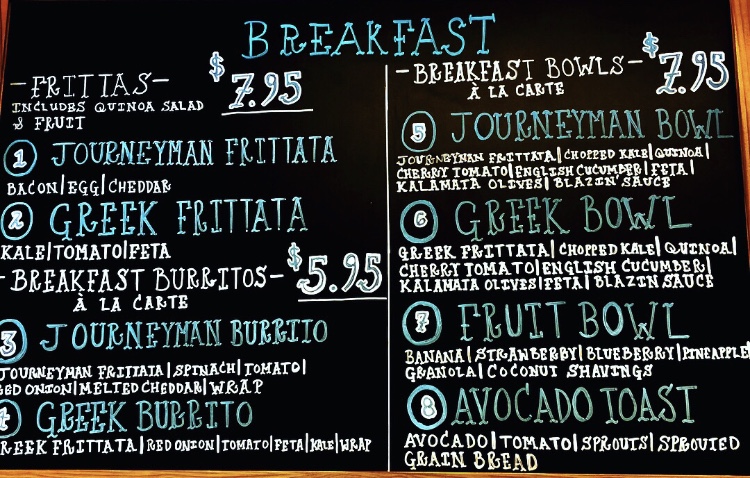 BREAKFAST
-FRITTAS- $7.95
INCLUDES QUINOA SALAD
& FRUIT
1 JOURNEYMAN FRITTATA
BACON|EGG|CHEDDAR
2 GREEK FRITTATA
KALE|TOMATO|FETA
-BREAKFAST BURRITOS- $5.95
À LA CARTE
3 JOURNEYMAN BURRITO
JOURNEYMAN FRITTATA|SPINACH|TOMATO|
RED ONION|MELTED CHEDDAR|WRAP
4 GREEK BURRITO
GREEK FRITTATA|RED ONION|TOMATO|FETA|KALE|WRAP
-BREAKFAST BOWLS- $7.95
À LA CARTE
5 JOURNEYMAN BOWL
JOURNEYMAN FRITTATA|CHOPPED KALE|QUINOA|
CHERRY TOMATO|ENGLISH CUCUMBER|FETA|
KALAMATA OLIVES|BLAZIN' SAUCE
6 GREEK BOWL
GREEK FRITTATA|CHOPPED KALE|QUINOA|
CHERRY TOMATO|ENGLISH CUCUMBER|
KALAMATA OLIVES|FETA|BLAZIN SAUCE
7 FRUIT BOWL
BANANA|STRAWBERRY|BLUEBERRY|PINEAPPLE|
GRANOLA|COCONUT SHAVINGS
8 AVOCADO TOAST
AVOCADO|TOMATO|SPROUTS|SPROUTED
GRAIN BREAD